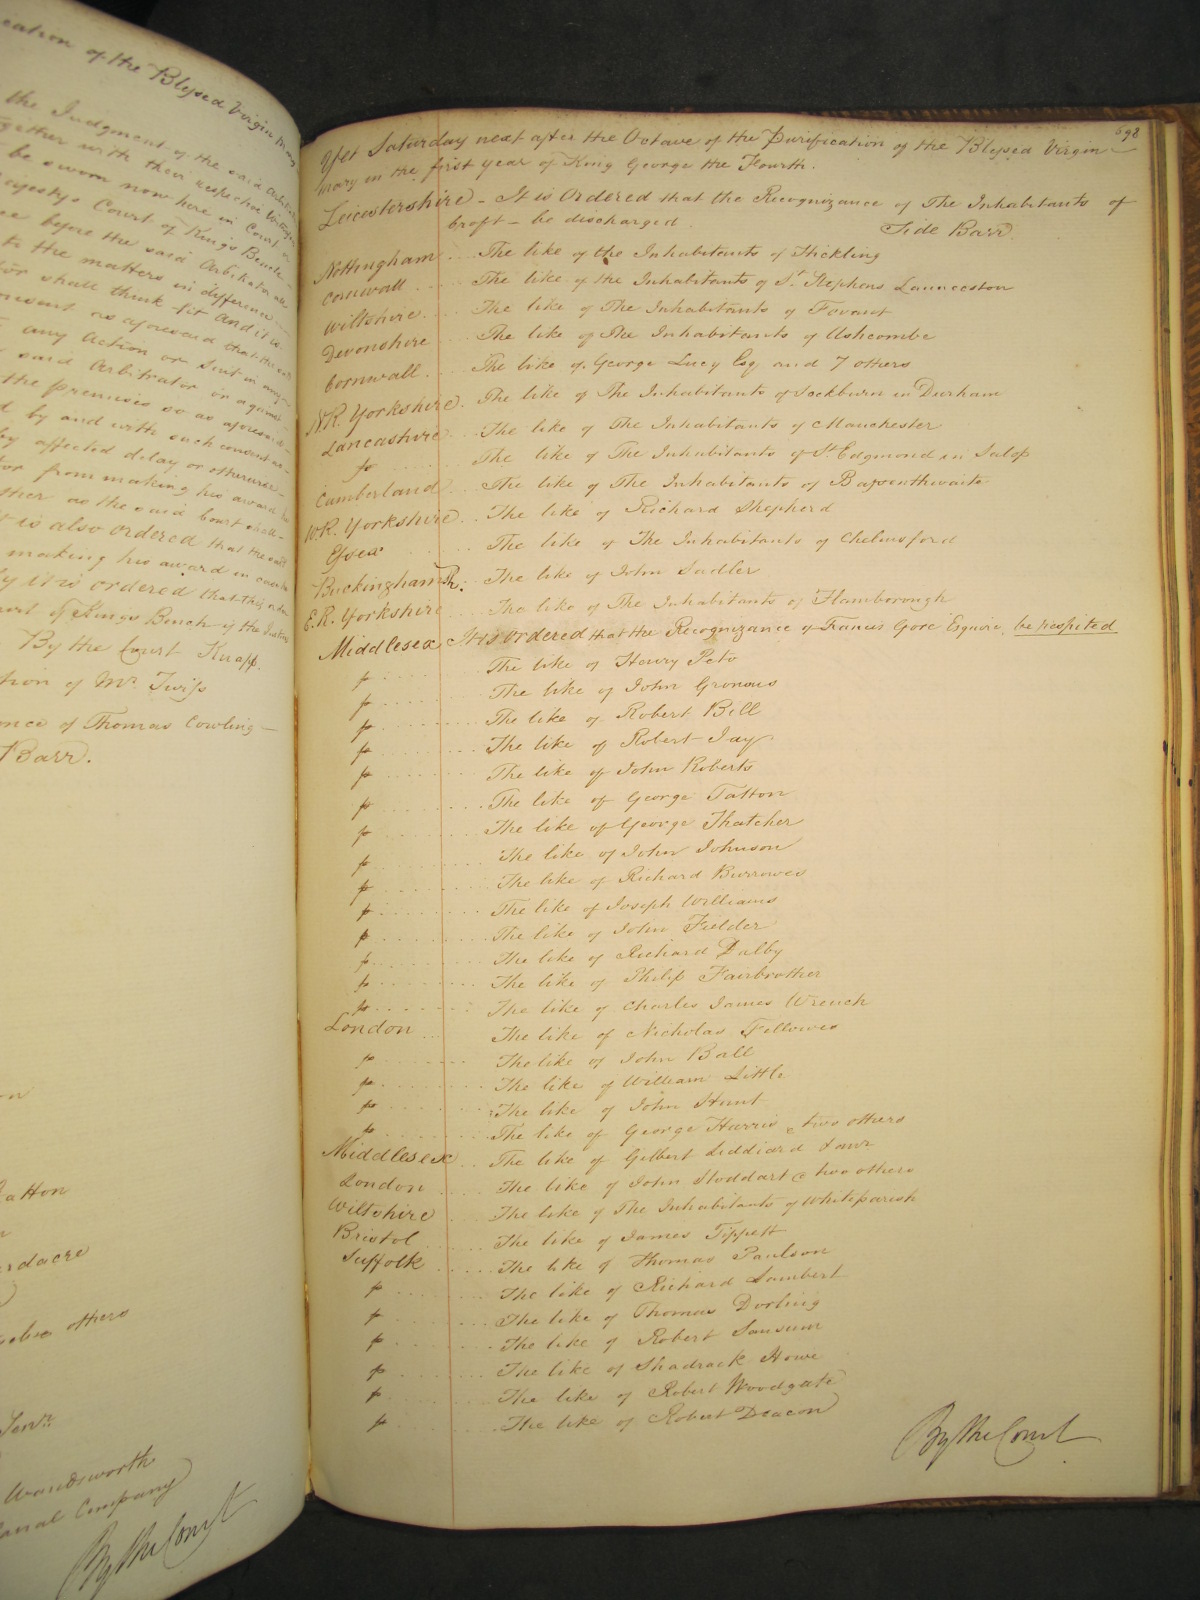 cation of the Blessed Virgin Mary
the Judgment of the said
together with their respective
be sworn now here in Court
Majestys Court of Kings Bench
before the said Arbitrator
to the matters in difference
shall think fit And it is
consent as aforesaid that the
any Action or Suit in
said Arbitrator or against
the premises so as aforesaid
by and with such consent
by affected delay or otherwise
for from making his award
other as the said Court shall
it is also Ordered that the said
making his award in
it is ordered that this
Court of Kings Bench if the
By the Court Knapp.
tion of Mr. Twiss
ance of Thomas Cowling
Barr.
Tatton
others
Wandsworth
Canal Company
By the Court
698
Yet Saturday next after the Octave of the Purification of the Blessed Virgin
Mary in the first year of King George the Fourth.
Leicestershire - It is Ordered that the Recognizance of The Inhabitants of
Croft - be discharged Side Barr.
Nottingham The like of the Inhabitants of Hickling
Cornwall The like of the Inhabitants of St. Stephens Launceston
Wiltshire The like of The Inhabitants of Fovant
Devonshire The like of The Inhabitants of Ashcombe
Cornwall The like of George Lucy Esq and 7 others
N.R. Yorkshire The like of The Inhabitants of Sockburn in Durham
Lancashire The like of The Inhabitants of Manchester
fo The like of The Inhabitants of St. Edgmond in Salop
Cumberland The like of The Inhabitants of Bassenthwaite
W.R. Yorkshire The like of Richard Shepherd
Essex The like of The Inhabitants of Chelmsford
Buckingham Sh. The like of John Sadler
E.R. Yorkshire The like of The Inhabitants of Flamborough
Middlesex It is Ordered that the Recognizance of Francis Gore Esquire, be respited
p The like of Henry Peto
p The like of John Gronous
p The like of Robert Bill
p The like of Robert Jay
p The like of John Roberts
p The like of George Tatton
p The like of George Thatcher
p The like of John Johnson
p The like of Richard Burrowes
p The like of Joseph Williams
p The like of John Fielder
p The like of Richard Dalby
p The like of Philip Fairbrother
p The like of Charles James Wrench
London The like of Nicholas Fellowes
p The like of John Ball
p The like of William Little
p The like of John Hunt
p The like of George Harris & two others
Middlesex The like of Gilbert Liddiard
London The like of John Stoddart & two others
Wiltshire The like of The Inhabitants of Whiteparish
Bristol The like of James Tippett
Suffolk The like of Thomas Paulson
p The like of Richard Lambert
p The like of Thomas Dorling
p The like of Robert Sansum
p The like of Shadrack Howe
p The like of Robert Woodgate
p The like of Robert Deacon
By the Court